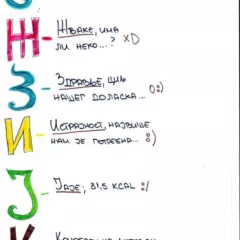 Ж - Жваке, има
ли неко...? XD
З - Здравље, циљ
нашег доласка... O:)
И - Истрајност, највише
нам је потребна... :)
Ј - Јаје; 81,5 KCAL :/
К